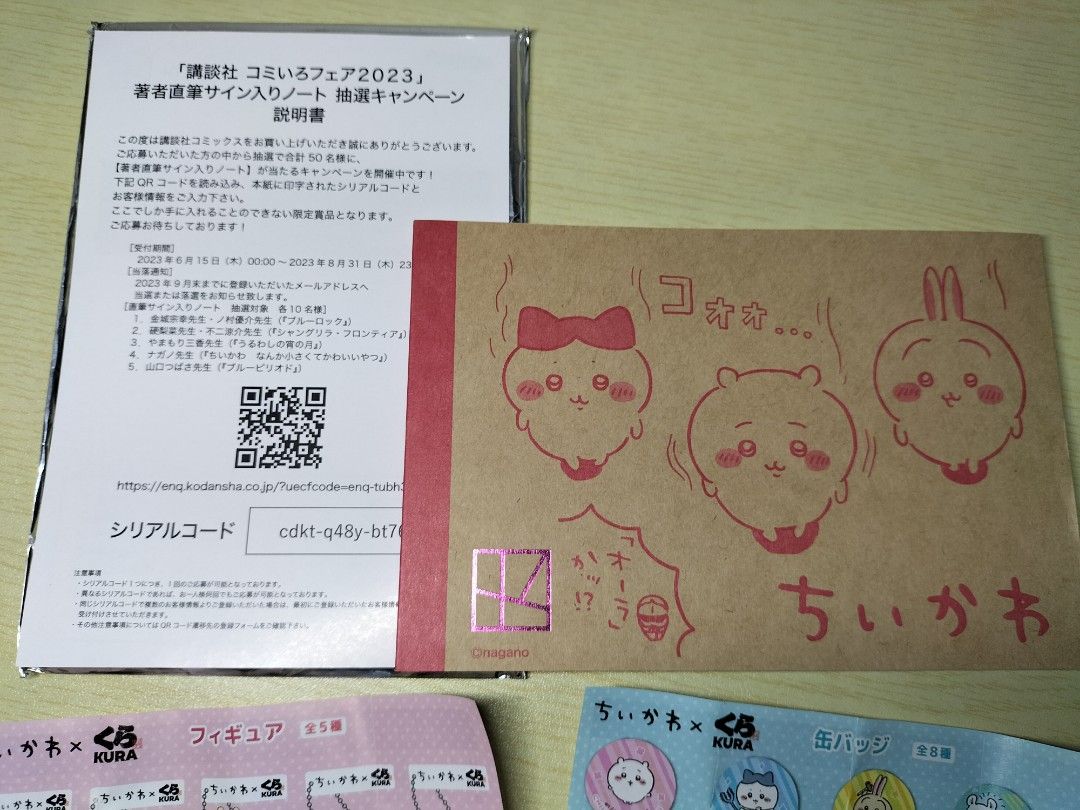 「講談社 コミいろフェア2023」
著者直筆サイン入りノート 抽選キャンペーン
説明書
この度は講談社コミックスをお買い上げいただき誠にありがとうございます。
ご応募いただいた方の中から抽選で合計50名様に、
【著者直筆サイン入りノート】が当たるキャンペーンを開催中です！
下記QRコードを読み込み、本紙に印字されたシリアルコードと
お客様情報をご入力下さい。
ここでしか手に入れることのできない限定賞品となります。
ご応募お待ちしております！
［受付期間］
2023年6月15日（木）00:00～2023年8月31日（木）23
［当落通知］
2023年9月末までに登録いただいたメールアドレスへ
当選または落選をお知らせ致します。
［直筆サイン入りノート 抽選対象 各10名様］
1. 金城宗幸先生・ノ村優介先生（『ブルーロック』）
2. 硬梨菜先生・不二涼介先生（『シャングリラ・フロンティア』）
3. やまもり三香先生（『うるわしの宵の月』）
4. ナガノ先生（『ちいかわ なんか小さくてかわいいやつ』）
5. 山口つばさ先生（『ブルーピリオド』）
https://enq.kodansha.co.jp/?uecfcode=enq-tubh
シリアルコード
cdkt-q48y-bt76
注意事項
・シリアルコード1つにつき、1回のご応募が可能となっております。
・異なるシリアルコードであれば、お一人様何回でもご応募が可能となっております。
・同じシリアルコードで複数のお客様情報よりご登録いただいた場合は、最初にご登録いただいたお客様情
受け付けさせていただきます。
・その他注意事項についてはQRコード遷移先の登録フォームをご確認下さい。
コォォ…
「オーラ」
かッ!?
ちいかわ
©nagano
いかわ×くら
KURA
フィギュア
全5種
いかわ×くら
KURA
ちいかわ×くら
KURA
ちいかわ×くら
KURA
ちいかわ×くら
KURA
ちいかわ×くら
KURA
ちいかわ×くら
KURA
缶バッジ
全8種